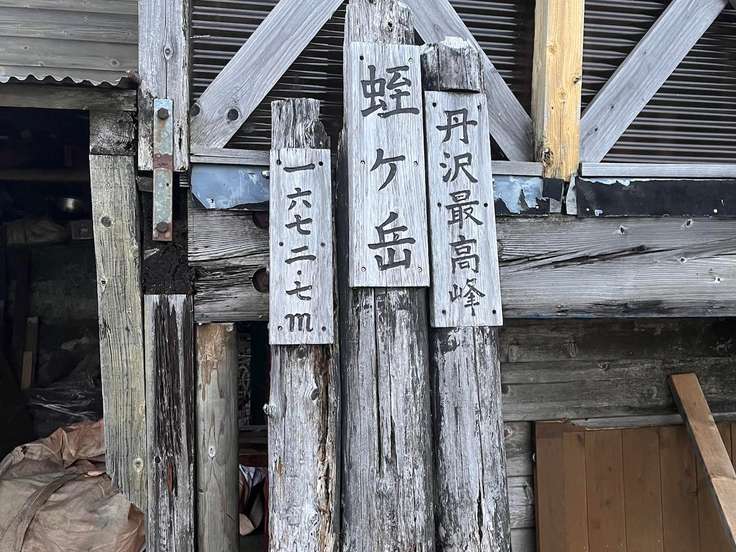 丹沢最高峰
蛭ヶ岳
一六七二.七m